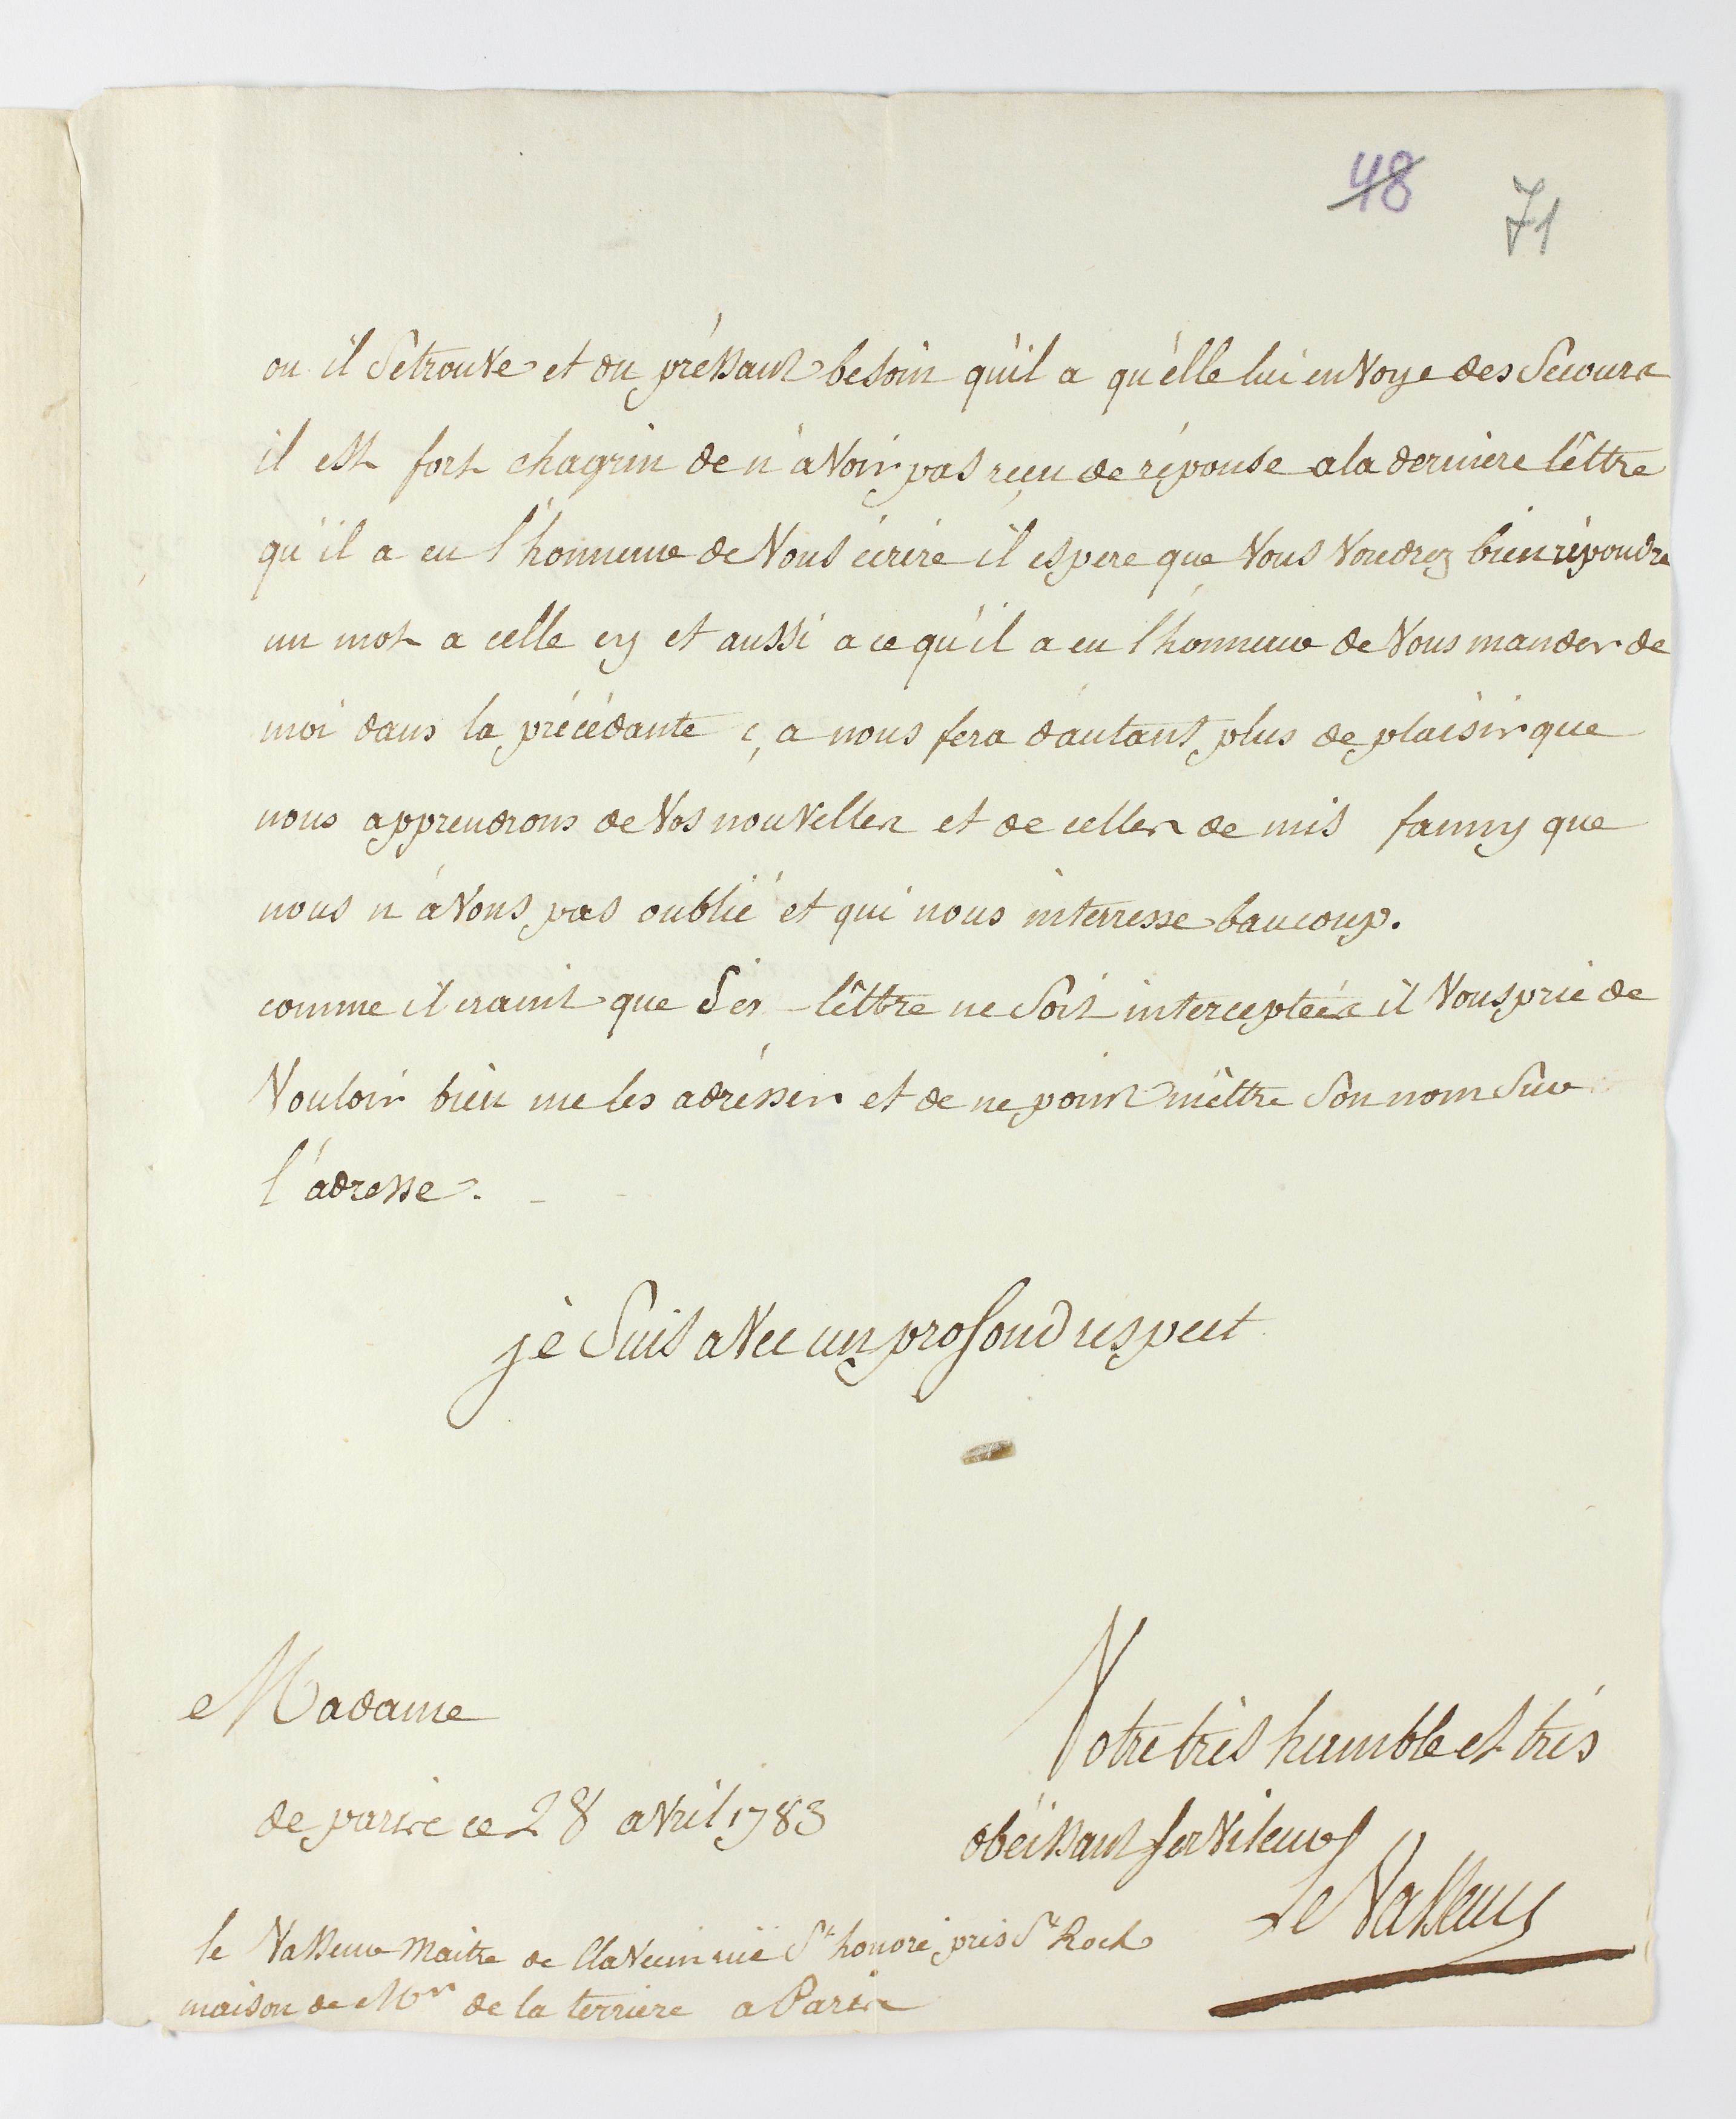 48 71
ou il Se trouve et du préssant besoin qu'il a qu'élle lui envoye des Secours
il est fort chagrin de n'avoir pas reçu de réponse a la derniere léttre
qu'il a eu l'honneur de Vous écrire il espere que Vous Voudrez bien répondre
un mot a celle cy et aussi a ce qu'il a eu l'honneur de Vous mander de
moi dans la précédante ça nous fera d'autant plus de plaisir que
nous apprendrons de Vos nouvelles et de celles de mis fanny que
nous n'avons pas oublié et qui nous interresse baucoup.
comme il craint que Ses léttre ne Soit interceptées il Vous prie de
Vouloir bien me les adrésser et de ne point méttre Son nom Sur
l'adresse.
je Suis avec un profond respect
Madame
Votre très humble et très
de paris ce 28 avril 1783
obéissant serviteur
le Vasseur
le Vasseur Maitre de Clavecin rüe St honoré près St Roch
maison de Mr de la terriere a Paris